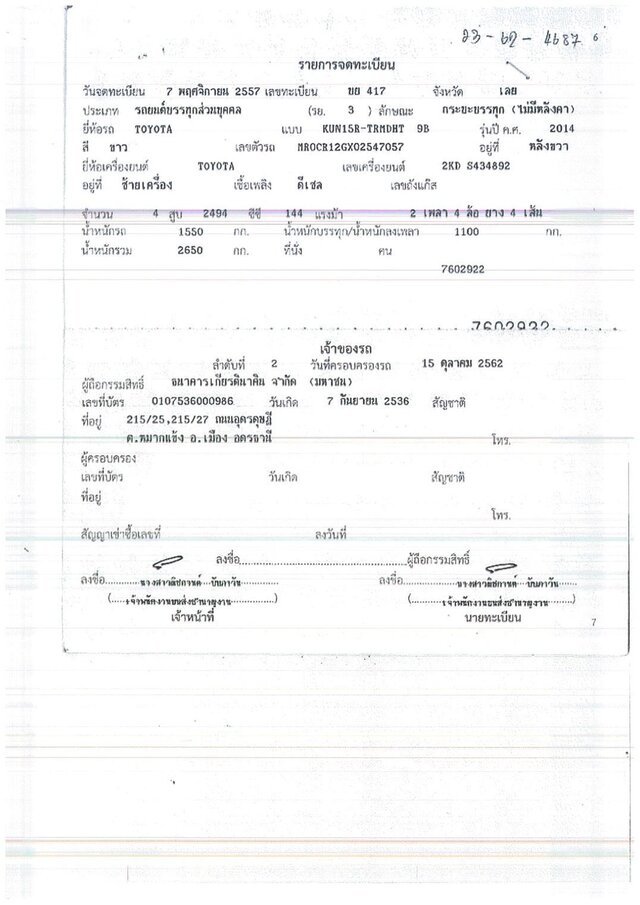 23-62-4687 6
รายการจดทะเบียน
วันจดทะเบียน 7 พฤศจิกายน 2557 เลขทะเบียน ขย 417 จังหวัด เลย
ประเภท รถยนต์บรรทุกส่วนบุคคล (รย. 3 ) ลักษณะ กระบะบรรทุก (ไม่มีหลังคา)
ยี่ห้อรถ TOYOTA แบบ KUN15R-TRMDHT 9B รุ่นปี ค.ศ. 2014
สี ขาว เลขตัวรถ MR0CR12GX02547057 อยู่ที่ หลังขวา
ยี่ห้อเครื่องยนต์ TOYOTA เลขเครื่องยนต์ 2KD S434892
อยู่ที่ ซ้ายเครื่อง เชื้อเพลิง ดีเซล เลขถังแก๊ส
จำนวน 4 สูบ 2494 ซีซี 144 แรงม้า 2 เพลา 4 ล้อ ยาง 4 เส้น
น้ำหนักรถ 1550 กก. น้ำหนักบรรทุก/น้ำหนักลงเพลา 1100 กก.
น้ำหนักรวม 2650 กก. ที่นั่ง คน
7602922
7602922
เจ้าของรถ
ลำดับที่ 2 วันที่ครอบครองรถ 15 ตุลาคม 2562
ผู้ถือกรรมสิทธิ์ ธนาคารเกียรตินาคิน จำกัด (มหาชน)
เลขที่บัตร 0107536000986 วันเกิด 7 กันยายน 2536 สัญชาติ
ที่อยู่ 215/25,215/27 ถนนอุดรดุษฎี
ต.หมากแข้ง อ.เมือง อุดรธานี โทร.
ผู้ครอบครอง
เลขที่บัตร วันเกิด สัญชาติ
ที่อยู่
โทร.
สัญญาเช่าซื้อเลขที่ ลงวันที่
ลงชื่อ ผู้ถือกรรมสิทธิ์
ลงชื่อ นางสาวณิชกานต์ ลงชื่อ นางสาวณิชกานต์
(เจ้าพนักงานขนส่งชำนาญงาน) (เจ้าพนักงานขนส่งชำนาญงาน)
เจ้าหน้าที่ นายทะเบียน
7